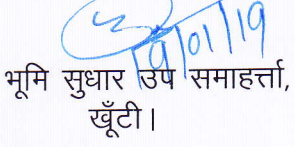 19/01/19
भूमि सुधार उप समाहर्त्ता,
खूँटी।